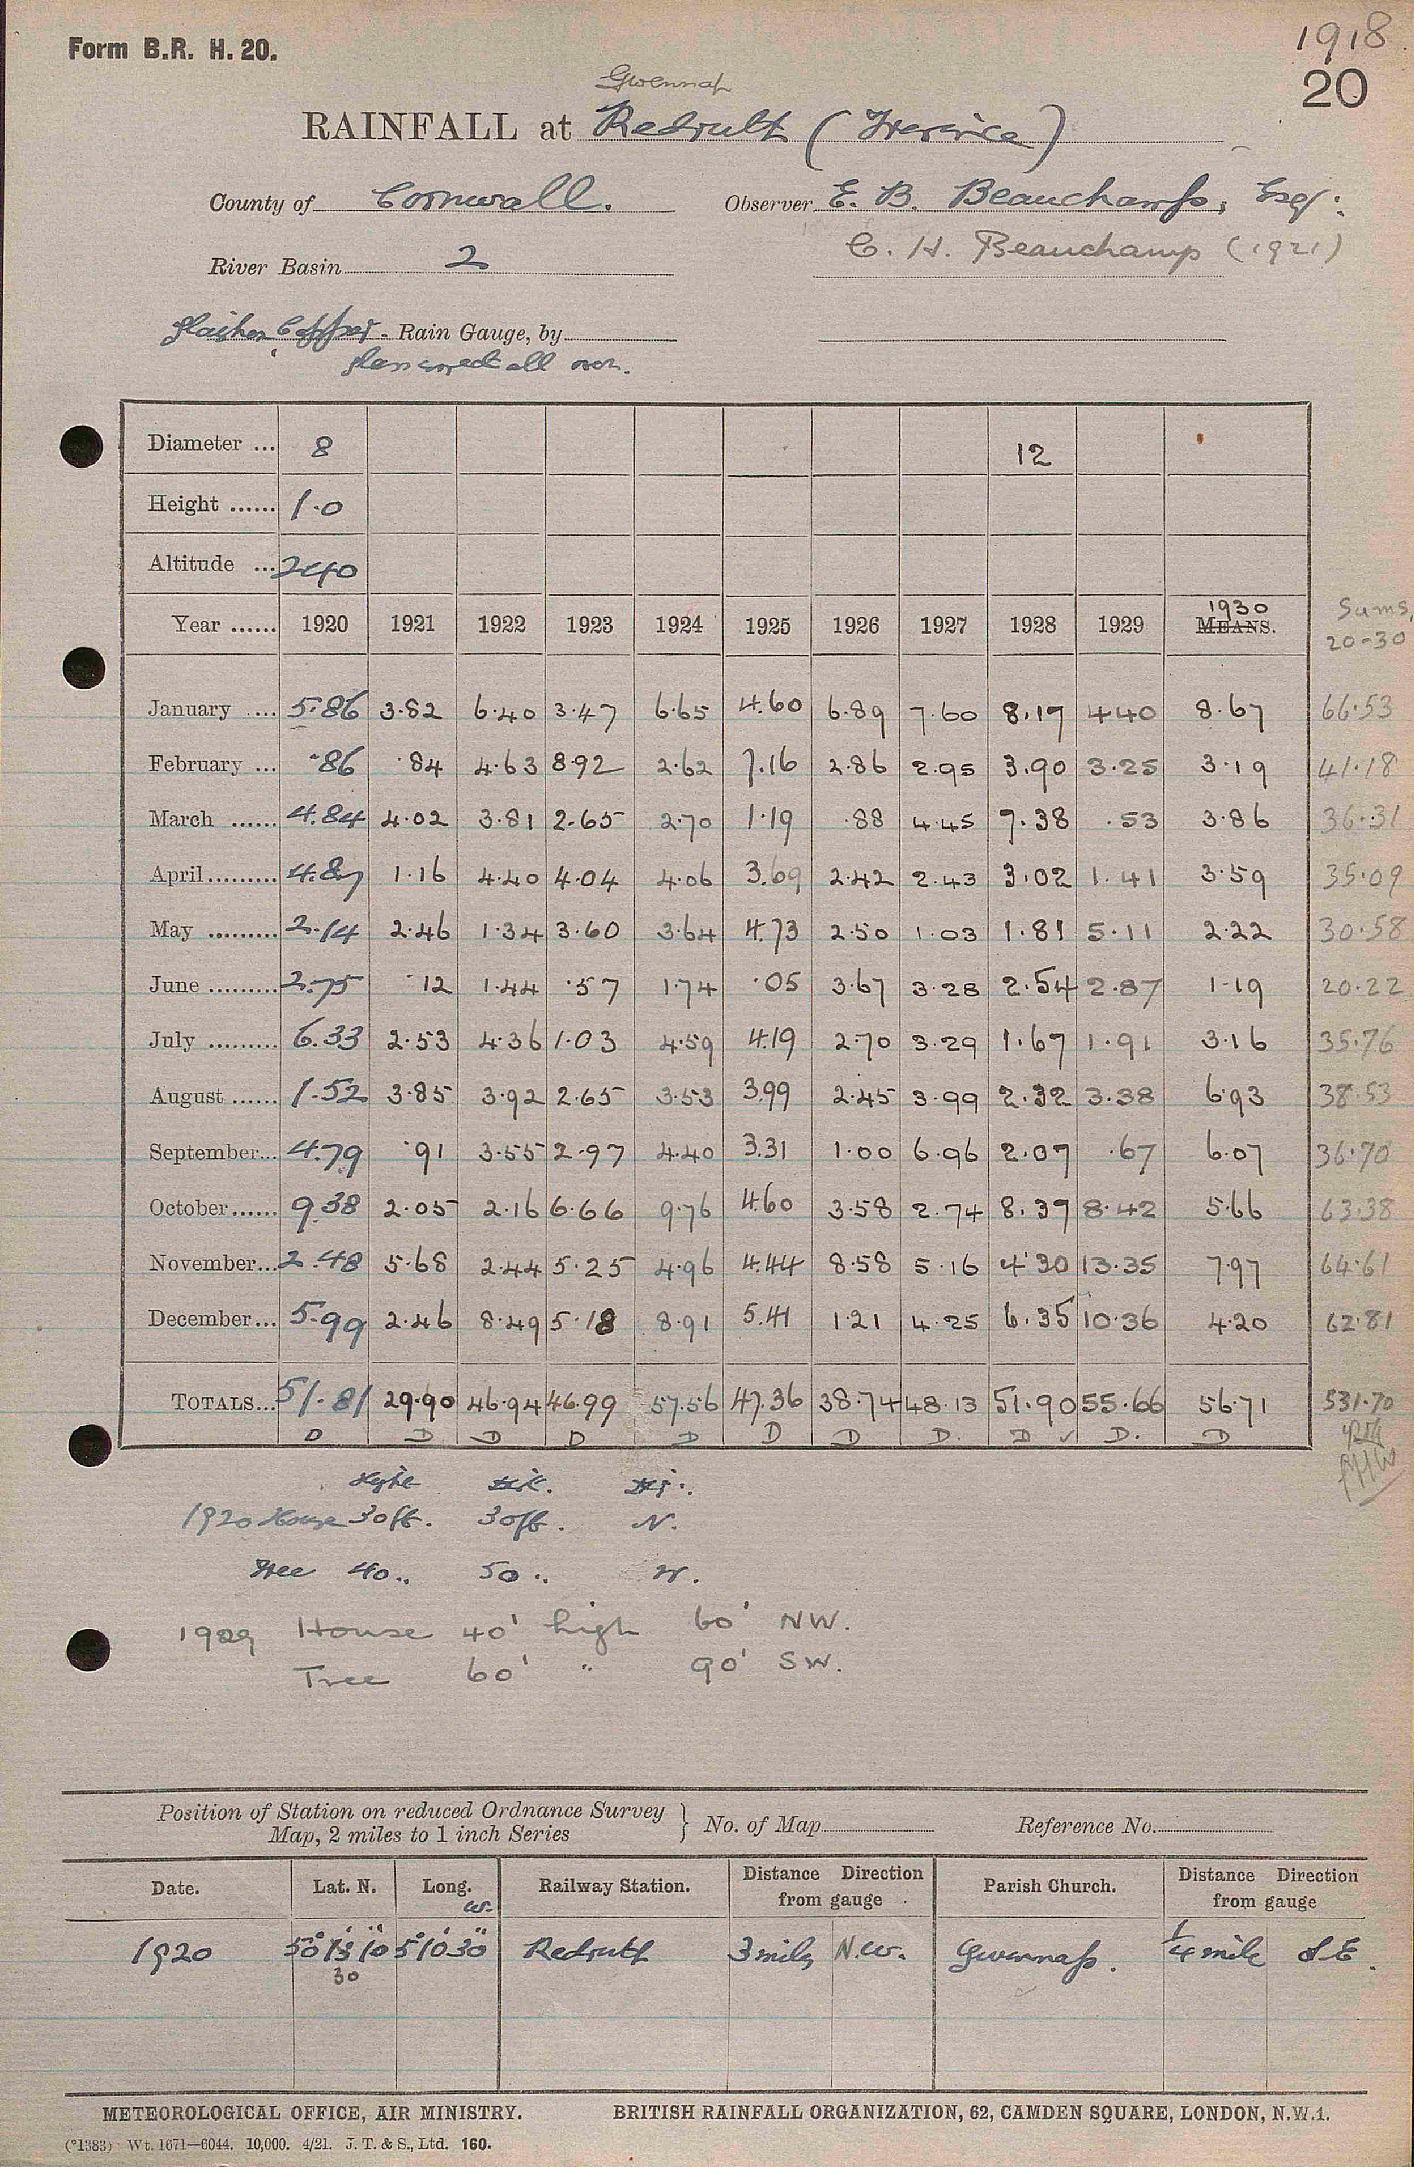 Form B.R. H. 20.
1918
20
Gwennap
RAINFALL at Redruth (Trevince)
County of Cornwall. Observer E. B. Beauchamp, Esq:
C. H. Beauchamp (1921)
River Basin 2
Glaisher, Copper - Rain Gauge, by
all over.
Diameter ... 8 12
Height ...... 1.0
Altitude ... 240
Year ...... 1920 1921 1922 1923 1924 1925 1926 1927 1928 1929 1930 MEANS. Sums, 20-30
January .... 5.86 3.82 6.40 3.47 6.65 4.60 6.89 7.60 8.19 4.40 8.67 66.53
February ... .86 .84 4.63 8.92 2.62 7.16 2.86 2.95 3.90 3.25 3.19 41.18
March ...... 4.84 4.02 3.81 2.65 2.70 1.19 .88 4.45 7.38 .53 3.86 36.31
April......... 4.87 1.16 4.40 4.04 4.06 3.69 2.42 2.43 3.02 1.41 3.59 35.09
May ......... 2.14 2.46 1.34 3.60 3.64 4.73 2.50 1.03 1.81 5.11 2.22 30.58
June ......... 2.75 .12 1.44 .57 1.74 .05 3.67 3.28 2.54 2.87 1.19 20.22
July ......... 6.33 2.53 4.36 1.03 4.59 4.19 2.70 3.29 1.67 1.91 3.16 35.76
August ...... 1.52 3.85 3.92 2.65 3.53 3.99 2.45 3.99 2.32 3.38 6.93 38.53
September... 4.79 .91 3.55 2.97 4.40 3.31 1.00 6.96 2.07 .67 6.07 36.70
October...... 9.38 2.05 2.16 6.66 9.76 4.60 3.58 2.74 8.37 8.42 5.66 63.38
November... 2.48 5.68 2.44 5.25 4.96 4.44 8.58 5.16 4.30 13.35 7.97 64.61
December... 5.99 2.46 8.49 5.18 8.91 5.41 1.21 4.25 6.35 10.36 4.20 62.81
TOTALS... 51.81 29.90 46.94 46.99 57.56 47.36 38.74 48.13 51.90 55.66 56.71 531.70
D D D D D D D D. D ✓ D. D
1920 House 30 ft. 30 ft. N.
Tree 40 .. 50 .. W.
1929 House 40' high 60' NW.
Tree 60' " 90' SW.
Position of Station on reduced Ordnance Survey Map, 2 miles to 1 inch Series } No. of Map Reference No.
Date. Lat. N. Long. W. Railway Station. Distance Direction from gauge Parish Church. Distance Direction from gauge
1920 50° 13' 10" 5° 10' 30" Redruth 3 miles N.W. Gwennap. 1/4 mile S.E.
30
METEOROLOGICAL OFFICE, AIR MINISTRY. BRITISH RAINFALL ORGANIZATION, 62, CAMDEN SQUARE, LONDON, N.W.1.
(*1383) Wt. 1671—6044. 10,000. 4/21. J. T. & S., Ltd. 160.